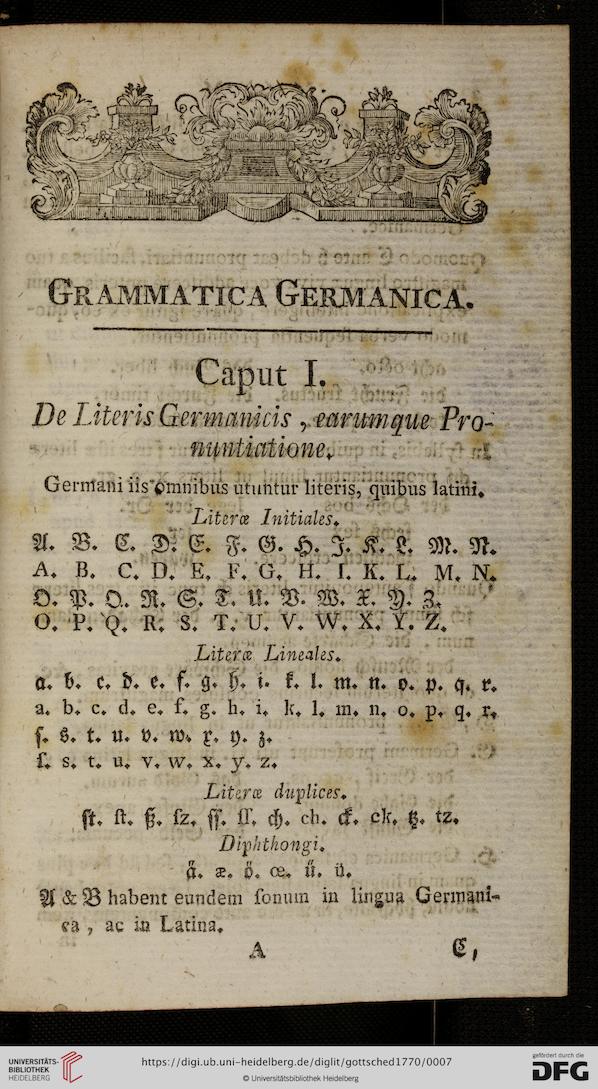 GRAMMATICA GERMANICA.
Caput I.
De Literis Germanicis, earumque Pro-
nuntiatione.
Germani iis omnibus utuntur literis, quibus latini.
Literæ Initiales.
A. B. C. D. E. F. G. H. I. K. L. M. N.
A. B. C. D. E. F. G. H. I. K. L. M. N.
O. P. Q. R. S. T. U. V. W. X. Y. Z.
O. P. Q. R. S. T. U. V. W. X. Y. Z.
Literæ Lineales.
a. b. c. d. e. f. g. h. i. k. l. m. n. o. p. q. r.
a. b. c. d. e. f. g. h. i. k. l. m. n. o. p. q. r.
ſ. s. t. u. v. w. x. y. z.
ſ. s. t. u. v. w. x. y. z.
Literæ duplices.
ſt. ſt. ß. ſz. ſſ. ſſ. ch. ch. ck. ck. tz. tz.
Diphthongi.
aͤ. æ. oͤ. œ. uͤ. ü.
A & B habent eundem ſonum in lingua Germani-
ca, ac in Latina.
A C,
UNIVERSITÄTS-
BIBLIOTHEK
HEIDELBERG
https://digi.ub.uni-heidelberg.de/diglit/gottsched1770/0007
© Universitätsbibliothek Heidelberg
gefördert durch die
DFG